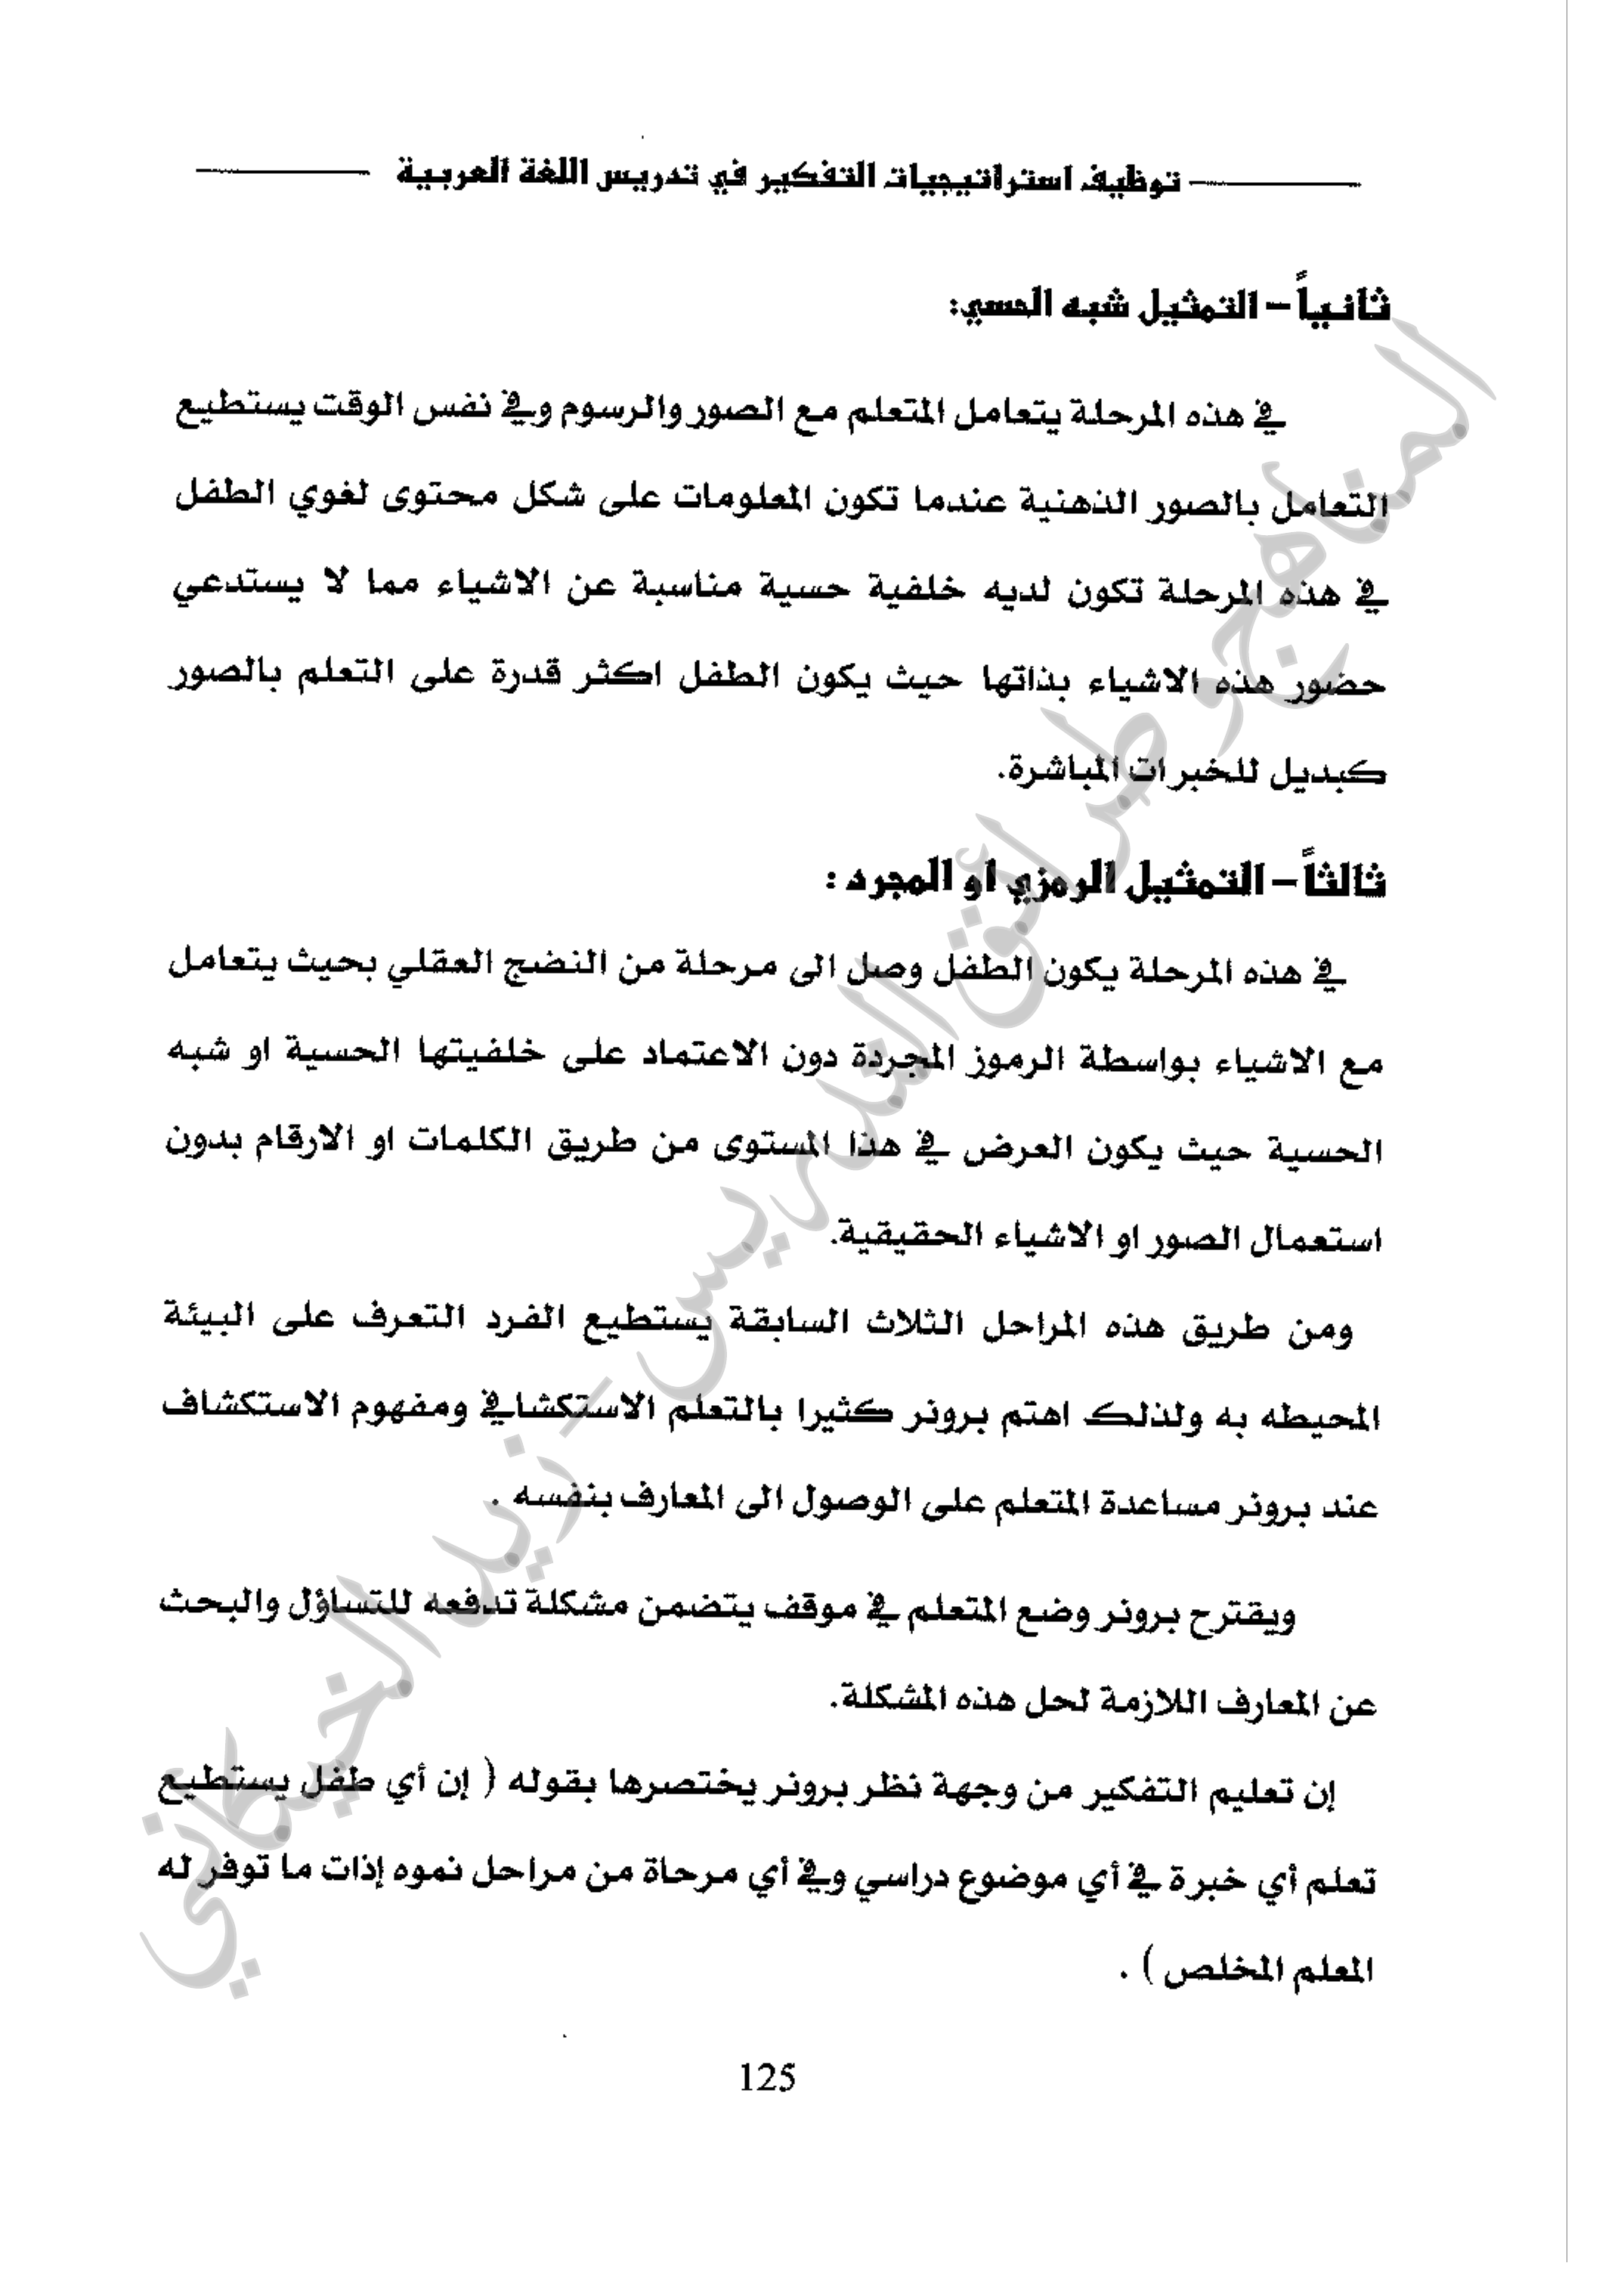 توظيف استراتيجيات التفكير في تدريس اللغة العربية
ثانياً – التمثيل شبه الحسي:
في هذه المرحلة يتعامل المتعلم مع الصور والرسوم وفي نفس الوقت يستطيع
التعامل بالصور الذهنية عندما تكون المعلومات على شكل محتوى لغوي الطفل
في هذه المرحلة تكون لديه خلفية حسية مناسبة عن الاشياء مما لا يستدعي
حضور هذه الاشياء بذاتها حيث يكون الطفل اكثر قدرة على التعلم بالصور
كبديل للخبرات المباشرة.
ثالثاً – التمثيل الرمزي او المجرد :
في هذه المرحلة يكون الطفل وصل الى مرحلة من النضج العقلي بحيث يتعامل
مع الاشياء بواسطة الرموز المجردة دون الاعتماد على خلفيتها الحسية او شبه
الحسية حيث يكون العرض في هذا المستوى من طريق الكلمات او الارقام بدون
استعمال الصور او الاشياء الحقيقية.
ومن طريق هذه المراحل الثلاث السابقة يستطيع الفرد التعرف على البيئة
المحيطه به ولذلك اهتم برونر كثيرا بالتعلم الاستكشافي ومفهوم الاستكشاف
عند برونر مساعدة المتعلم على الوصول الى المعارف بنفسه .
ويقترح برونر وضع المتعلم في موقف يتضمن مشكلة تدفعه للتساؤل والبحث
عن المعارف اللازمة لحل هذه المشكلة.
إن تعليم التفكير من وجهة نظر برونر يختصرها بقوله ( إن أي طفل يستطيع
تعلم أي خبرة في أي موضوع دراسي وفي أي مرحاة من مراحل نموه إذات ما توفر له
المعلم المخلص ) .
125
المناهج وطرائق التدريس - زيد الخيكاني